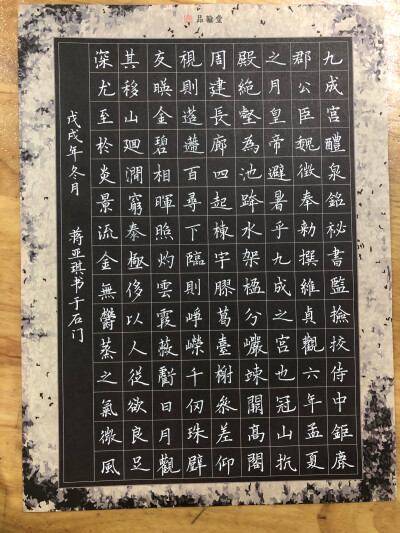 品翰堂
九成宮醴泉銘祕書監撿挍侍中鉅鹿
郡公臣魏徵奉勑撰維貞觀六年孟夏
之月皇帝避暑乎九成之宮也冠山抗
殿絶壑為池跨水架楹分巖竦闕高閣
周建長廊四起棟宇膠葛臺榭參差仰
視則迢遰百尋下臨則崢嶸千仞珠壁
交暎金碧相暉照灼雲霞蔽虧日月觀
其移山迴澗窮泰極侈以人從欲良足
深尤至於炎景流金無鬱蒸之氣微風
戊戌年冬月 蒋亚琪书于石门